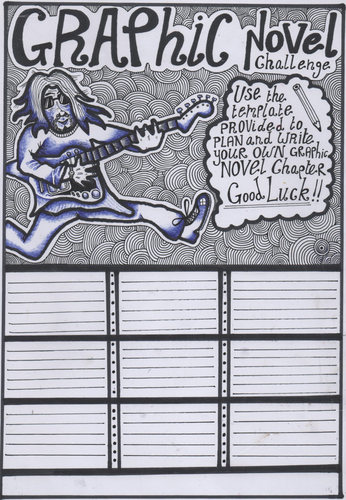 GRAPHiC Novel
Challenge
Use the
template
PROVIDED to
PLAN and WRitE
YOUR OWN GRAPHiC
NOVEL Chapter
Good Luck!!